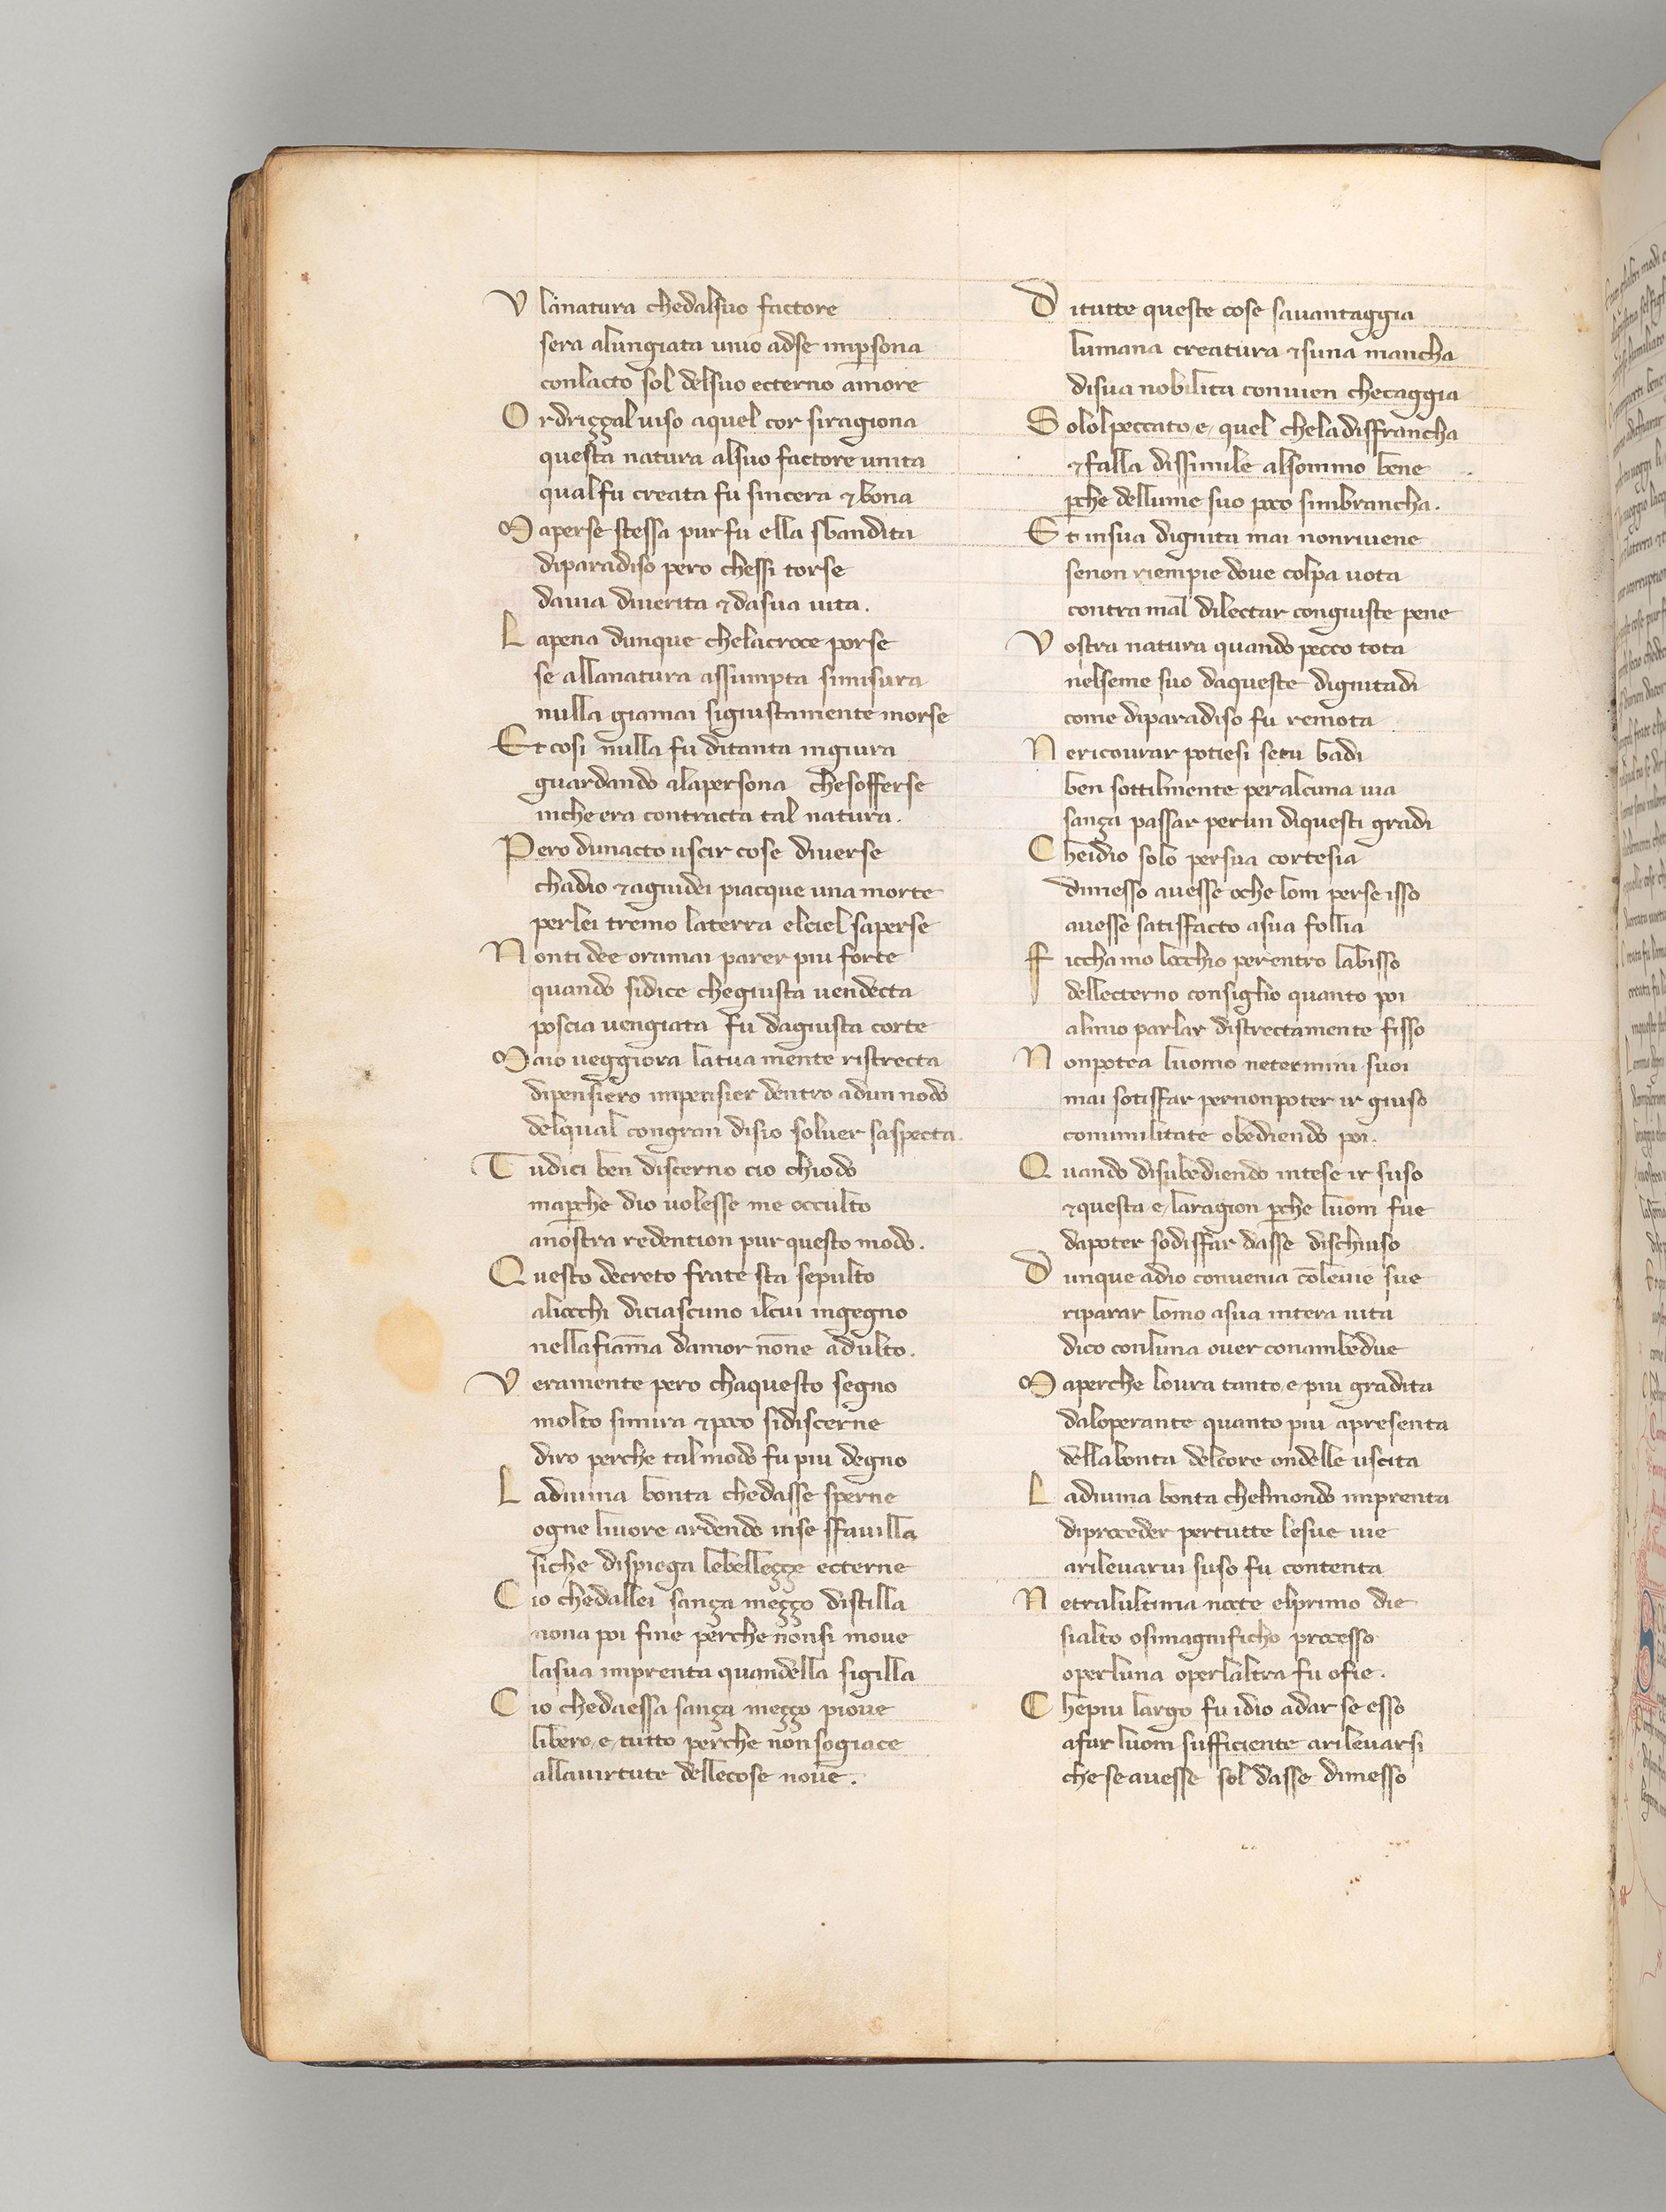 V lanatura chedalsuo factore
sera alungiata unio adse imp̱sona
conlacto sol delsuo ecterno amore
O rdriççal uiso aquel cor siragiona
questa natura alsuo factore unita
qualfu creata fu sincera ⁊ bona
M aperse stessa purfu ella sbandita
diparadiso pero chessi torse
dauia diuerita ⁊ dasua uita.
L apena dunque chelacroce porse
se allanatura assumpta simisura
nulla giamai sigiustamente morse
Et cosi nulla fu ditanta ingiura
guardando alapersona chesofferse
inche era contracta tal natura.
Pero dunacto uscir cose diuerse
chadio ⁊ aguidei piacque una morte
perlei tremo laterra elciel saperse
N onti dee oramai parer piu forte
quando sidice chegiusta uendecta
poscia uengiata fu dagiusta corte
M aio ueggiora latua mente ristrecta
dipensiero impensier dentro adun nodo
delqual congran disio soluer saspecta.
T udici ben discerno cio chiodo
map̱che dio uolesse me occulto
anostra redention pur questo modo.
Q uesto decreto frate sta sepulto
aliocchi diciascuno ilcui ingegno
nellafiam̄a damor non̄e adulto.
V eramente pero chaquesto segno
molto simira ⁊ poco sidiscerne
diro perche talmodo fu piu degno
L adiuina bonta chedasse sperne
ogne liuore ardendo inse sfauilla
siche dispiega lebelleççe ecterne
C io chedallei sança meçço distilla
nona poi fine perche nonsi moue
lasua imprenta quandella sigilla
C io chedaessa sança meçço pioue
libero e tutto perche non sogiace
allauirtute dellecose noue.
D itutte queste cose sauantaggia
lumana creatura ⁊ suna mancha
disua nobilita conuien checaggia
S ololpeccato e quel cheladisfrancha
⁊ falla dissimile alsommo bene
p̱che dellume suo poco simbrancha.
E t insua dignita mai nonriuene
senon riempie doue colpa uota
contra mal dilectar congiuste pene
V ostra natura quando pecco tota
nelseme suo daqueste dignitadi
come diparadiso fu remota
N ericourar potiesi setu badi
ben sottilmente peralcuna uia
sança passar perun diquesti gradi
C heidio solo persua cortesia
dimesso auesse oche lom perse isso
auesse satisfacto asua follia
F icchamo locchio perentro labisso
dellecterno consiglio quanto poi
almio parlar distrectamente fisso
N onpotea luomo netermini suoi
mai sotisfar pernonpoter ir giuso
conumilitate obediendo poi.
Q uando disubediendo intese ir suso
⁊questa e laragion p̱che luom fue
dapoter sodisfar dasse dischiuso
D unque adio conuenia cōleuie sue
riparar lomo asua intera uita
dico conluna ouer conambedue
M aperche loura tanto e piu gradita
daloperante quanto piu apresenta
dellabonta delcore ondelle uscita
L adiuina bonta chelmondo imprenta
diproceder pertutte lesue uie
arileuarui suso fu contenta
N etralultima nocte elprimo die
sialto osimagnificho processo
operluna operlaltra fu ofie.
C hepiu largo fu idio adar se esso
afar luom sufficiente arileuarsi
che se auesse sol dasse dimesso